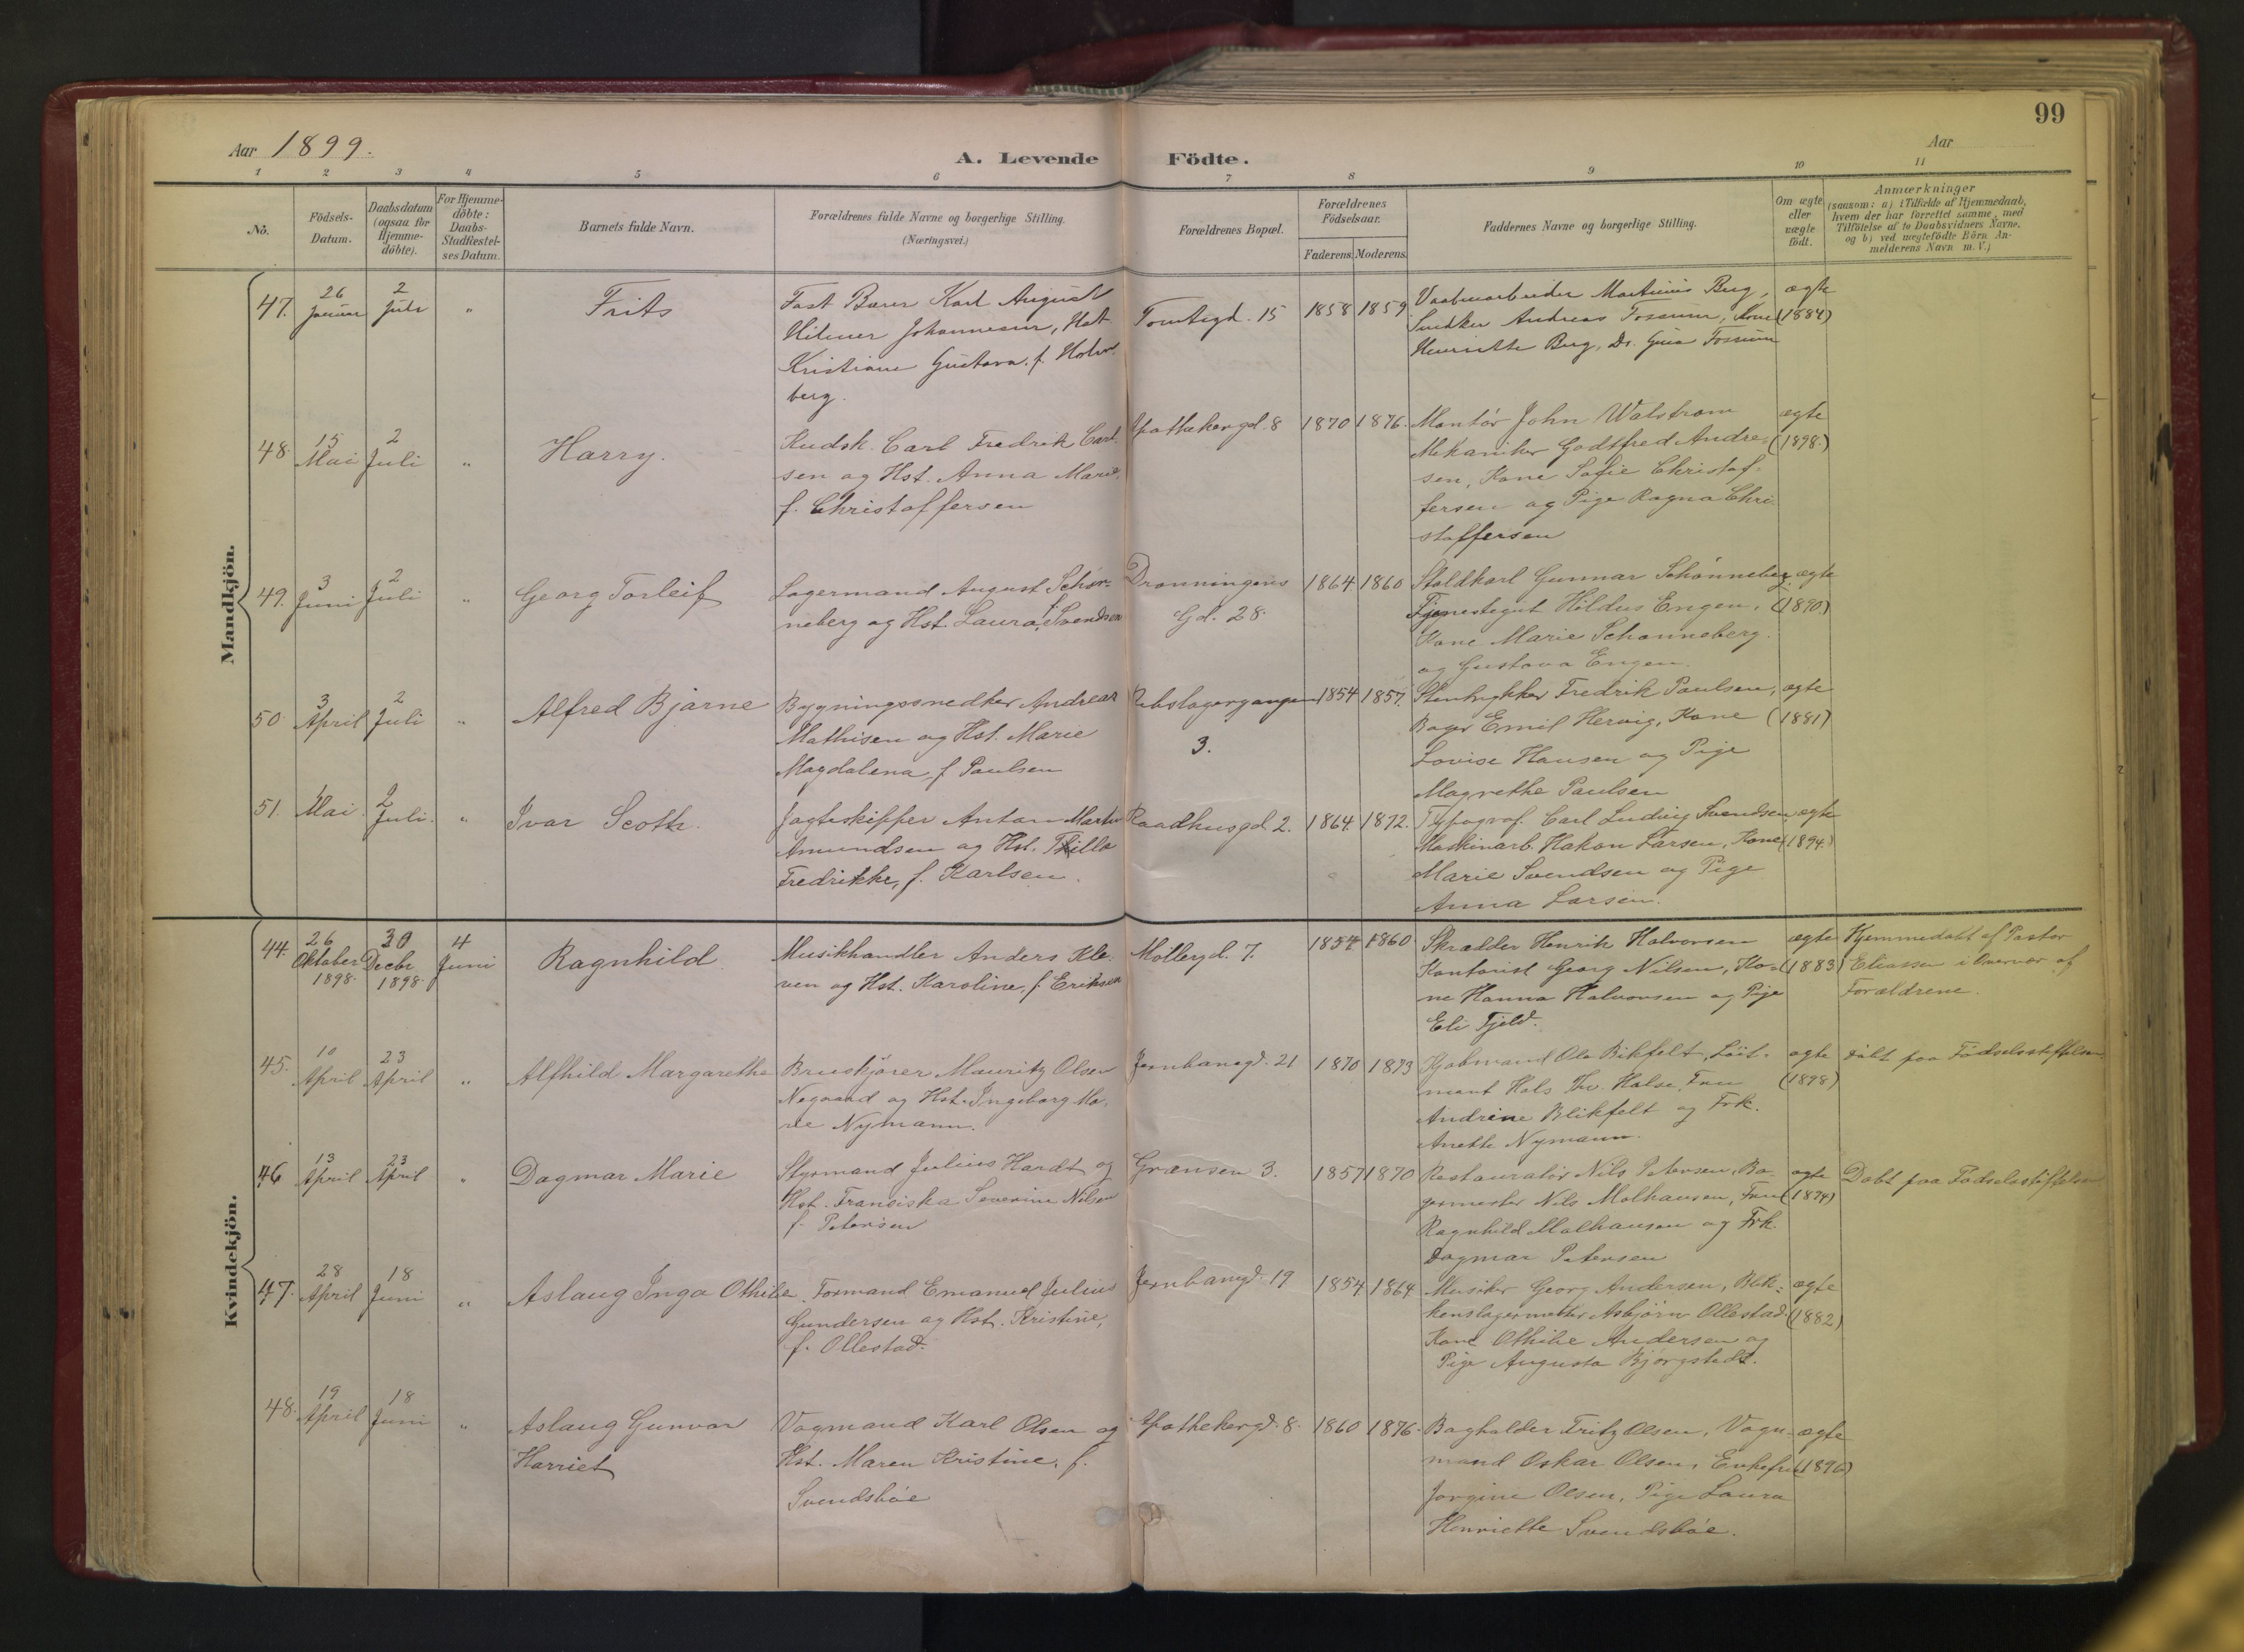 99
Aar 1899.
A. Levende Födte.
Aar
1 2 3 4 5 6 7 8 9 10 11
No.
Födsels-
Datum.
Daabsdatum
(ogsaa för
Hjemme-
döbte).
For Hjemme-
döbte:
Daabs-
Stadfæstel-
ses Datum.
Barnets fulde Navn.
Forældrenes fulde Navne og borgerlige Stilling.
(Næringsvei.)
Forældrenes Bopæl.
Forældrenes
Födselsaar.
Faderens. Moderens.
Faddernes Navne og borgerlige Stilling.
Om ægte
eller
uægte
födt.
Anmærkninger
(saasom: a) i Tilfælde af Hjemmedaab,
hvem der har forrettet samme, med
Tilföielse af to Daabsvidners Navne,
og b) ved uægtefödte Börn An-
melderens Navn m. V.)
Mandkjön.
47.
26
Januar
2
Juli
"
Frits
Fast Karl August
Hilmer Johannesen, Hst.
Kristiane Gustava, f. Holm-
berg.
Tomtegd. 15
1858 1859
Martinius Berg,
Snedker Andreas Fossum, Kone
Henriette Berg, Fossum
ægte
(1884)
48.
15
Mai
2
Juli
"
Harry.
Kudsk. Carl Fredrik Carl-
sen og Hst. Anna Marie,
f. Christoffersen
Apothekergd. 8
1870 1876.
Montör John Walstrøm
Mekaniker Godtfred Andre-
sen, Kone Sofie Christof-
fersen og Pige Ragna Chri-
stoffersen
ægte
(1898.)
49.
3
Juni
2
Juli
"
Georg Torleif
Lagermand August Schön-
neberg og Hst. Laura, f. Svendsen
Dronningens
Gd. 28.
1864 1860
Staldkarl Gunnar Schönneberg,
Tjenestegut Hildus Engen,
Kone Marie Schønneberg.
og Gustava Engen.
ægte
(1890)
50
3
April
2
Juli
"
Alfred Bjarne
Bygningssnedker Andreas
Mathisen og Hst. Marie
Magdalena, f Paulsen
Rebslagergangen
3.
1854 1857.
Stentrykker Fredrik Paulsen,
Bager Emil Hervig, Kone
Lovise Hansen og Pige
Magrethe Paulsen
ægte
(1881)
51.
1
Mai
2
Juli.
"
Ivar Scoth.
Jagteskipper Anton Martin
Amundsen og Hst. Thilla
Fredrikke, f. Karlsen.
Raadhusgd. 2.
1864. 1872.
Typograf. Carl Ludvig Svendsen,
Maskinarb. Hakon Larsen, Kone
Marie Svendsen og Pige
Anna Larsen.
ægte
(1894.)
Kvindekjön.
44.
26
Oktober
1898.
30
Decbr
1898.
4
Juni
Ragnhild
Musikhandler Anders Kle-
ven og Hst. Karoline, f Eriksen
Mollergd. 7.
1854 1860
Skrædder Henrik Halvorsen
Kontorist Georg Nilsen, Ko-
ne Hanna Halvorsen og Pige
Eli Fjeld.
ægte
(1883)
Hjemmedøbt af Pastor
Eliassen i Overvær af
Forældrene.
45.
10
April
23
April
"
Alfhild Margarethe
Bruskjører Mauritz Olsen
Negaard og Hst. Ingeborg Ma-
rie Nymann.
Jernbanegd. 21
1870 1873
Kjøbmand Ole Blikfelt, Löit-
nant Hals Halse, Fru
Andrine Blikfelt og Frk.
Anette Nymann.
ægte
(1898)
døbt paa Fødselsstiftelsen
46
13
April
23
April
"
Dagmar Marie
Styrmand Julius Hardt og
Hst. Fransiska Severine Nilsen
f. Petersen
Grænsen 3.
1857 1870
Restauratør Nils Petersen, Ba-
germester Nils Molhausen, Fru
Ragnhild Molhausen og Frk.
Dagmar Petersen
ægte
(1874)
Døbt paa Fødselsstiftelsen
47.
28
April
18
Juni
"
Aslaug Inga Othilie
Formand Emanuel Julius
Gundersen og Hst. Kristine,
f. Ollestad.
Jernbanegd. 19
1854 1864
Musiker Georg Andersen, Blik-
kenslagermester Asbjörn Ollestad
Kone Othilie Andersen og
Pige Augusta Bjørgstedt.
ægte
(1882)
48.
19
April
18
Juni
"
Aslaug Gunvor
Harriet
Vognmand Karl Olsen og
Hst. Maren Kristine, f.
Svendsböe
Apothekergd. 8.
1860 1876.
Bogholder Fritz Olsen, Vogn-
mand Oskar Olsen, Enkefru
Jørgine Olsen, Pige Laura
Henriette Svendsböe.
ægte
(1896)